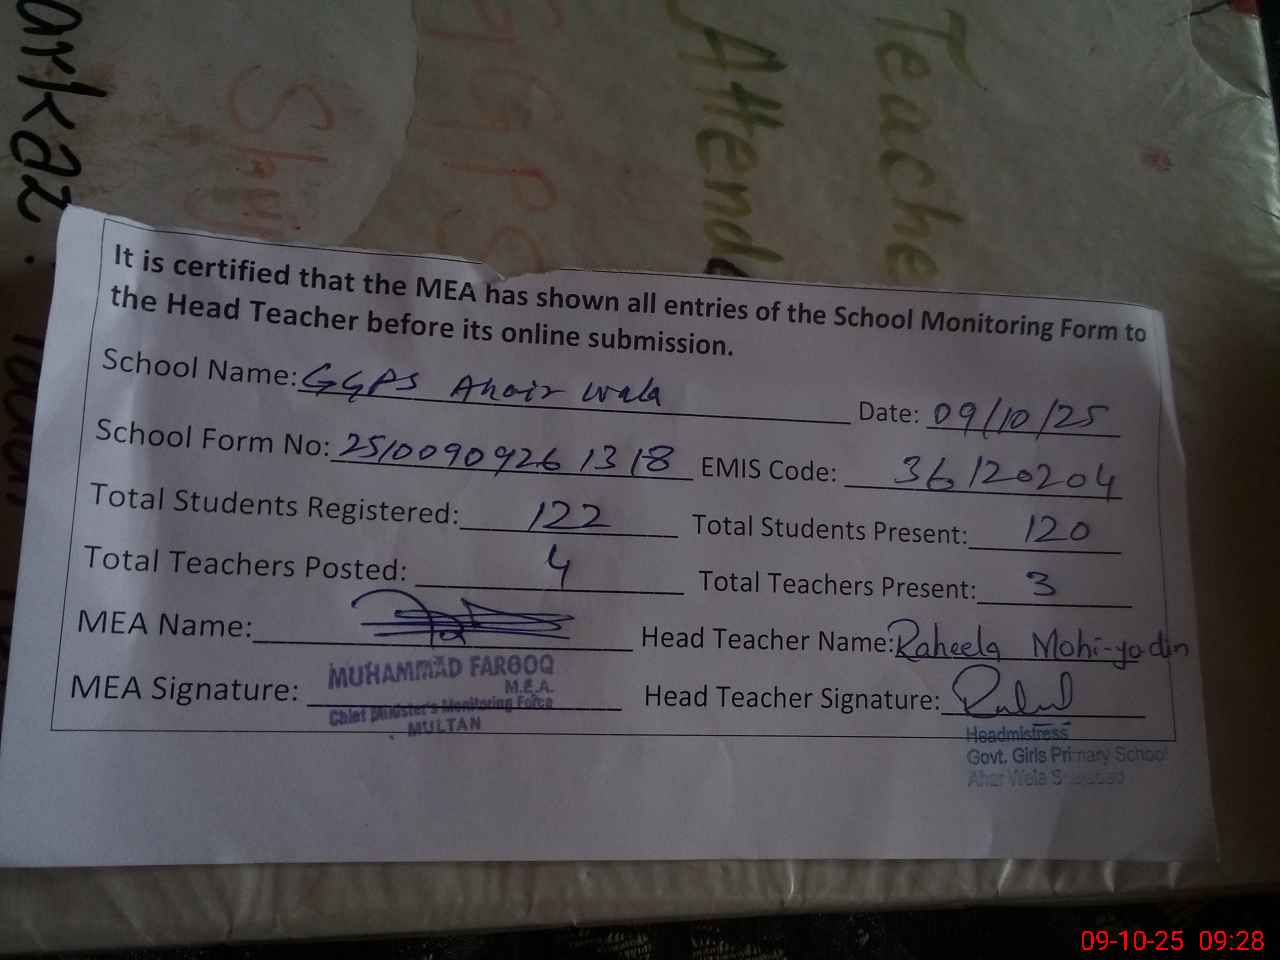 arkaz.
Shuj
GGPS
Attend
Teache
It is certified that the MEA has shown all entries of the School Monitoring Form to
the Head Teacher before its online submission.
School Name: GGPS Ahair wala Date: 09/10/25
School Form No: 2510090926 1318 EMIS Code: 36120204
Total Students Registered: 122 Total Students Present: 120
Total Teachers Posted: 4 Total Teachers Present: 3
MEA Name: Head Teacher Name: Raheela Mohi-yodin
MUHAMMAD FAROOQ
M.E.A.
MEA Signature: Head Teacher Signature:
Chief Minister's Monitoring Force
MULTAN
Headmistress
Govt. Girls Primary School
Ahar Wela
09-10-25 09:28